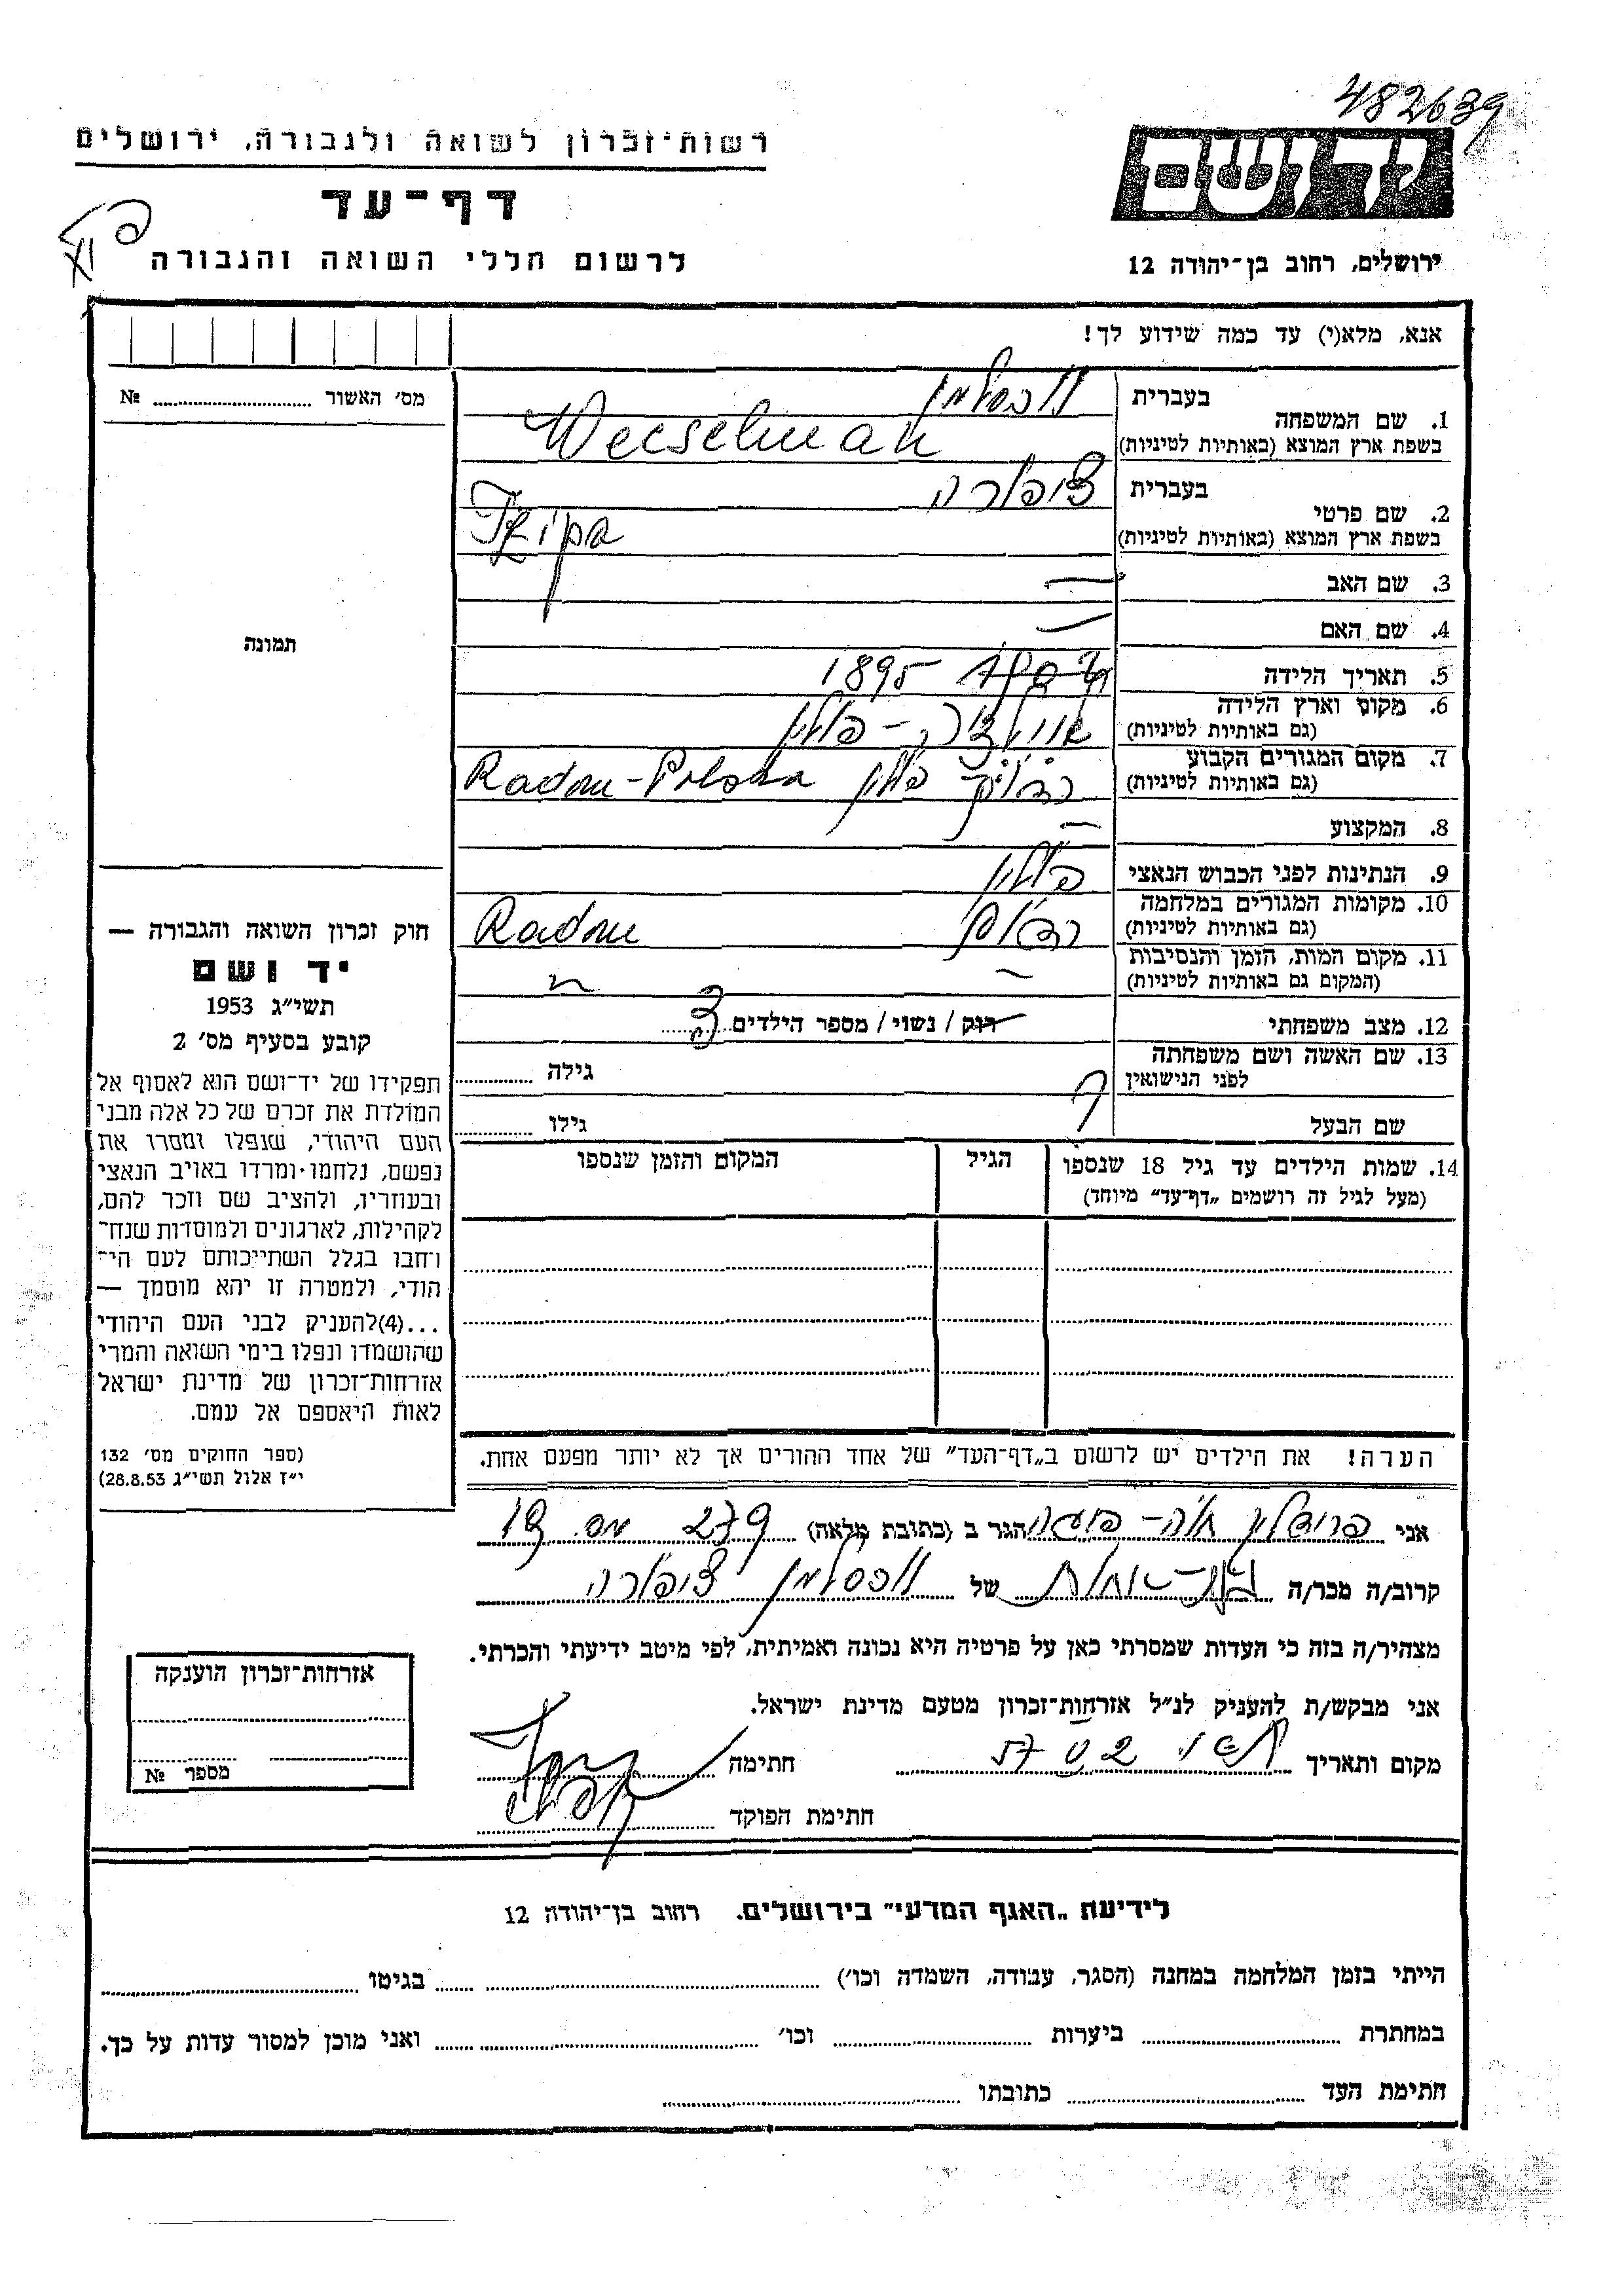 482639
רשות־זכרון לשואה ולגבורה, ירושלים
יד ושם
דף־עד
לרשום חללי השואה והגבורה
ירושלים, רחוב בן־יהודה 12
אנא, מלא(י) עד כמה שידוע לך!
מס׳ האשור № 
1. שם המשפחה
בעברית וכסלמן
בשפת ארץ המוצא (באותיות לטיניות) Wecselman
2. שם פרטי
בעברית ציפורה
בשפת ארץ המוצא (באותיות לטיניות) Tzipa
3. שם האב —
4. שם האם —
5. תאריך הלידה 1895
6. מקום וארץ הלידה
(גם באותיות לטיניות) פולין
7. מקום המגורים הקבוע
(גם באותיות לטיניות) רדום פולין Radom-Polska
8. המקצוע —
9. הנתינות לפני הכבוש הנאצי פולין
10. מקומות המגורים במלחמה
(גם באותיות לטיניות) רדום Radom
11. מקום המות, הזמן והנסיבות
(המקום גם באותיות לטיניות)
12. מצב משפחתי רוק / נשוי / מספר הילדים 3
13. שם האשה ושם משפחתה
לפני הנישואין גילה
שם הבעל גילו
14. שמות הילדים עד גיל 18 שנספו
(מעל לגיל זה רושמים „דף־עד״ מיוחד)
הגיל
המקום והזמן שנספו
תמונה
חוק זכרון השואה והגבורה —
יד ושם
תשי״ג 1953
קובע בסעיף מס׳ 2
תפקידו של יד־ושם הוא לאסוף אל
המולדת את זכרם של כל אלה מבני
העם היהודי, שנפלו ומסרו את
נפשם, נלחמו ומרדו באויב הנאצי
ובעוזריו, ולהציב שם וזכר להם,
לקהילות, לארגונים ולמוסדות שנח־
רחבו בגלל השתייכותם לעם הי־
הודי, ולמטרה זו יהא מוסמך —
...(4)להעניק לבני העם היהודי
שהושמדו ונפלו בימי השואה והמרי
אזרחות־זכרון של מדינת ישראל
לאות היאספם אל עמם.
(ספר החוקים מס׳ 132
י״ז אלול תשי״ג 28.8.53)
הערה! את הילדים יש לרשום ב„דף־העד״ של אחד ההורים אך לא יותר מפעם אחת.
אני הגר ב (כתובת מלאה)
קרוב/ה מכר/ה של וכסלמן ציפורה
מצהיר/ה בזה כי העדות שמסרתי כאן על פרטיה היא נכונה ואמיתית, לפי מיטב ידיעתי והכרתי.
אני מבקש/ת להעניק לנ״ל אזרחות־זכרון מטעם מדינת ישראל.
מקום ותאריך חתימה
חתימת הפוקד
אזרחות־זכרון הוענקה
מספר №
לידיעת „האגף המדעי״ בירושלים. רחוב בן־יהודה 12
הייתי בזמן המלחמה במחנה (הסגר, עבודה, השמדה וכו׳) בגיטו
במחתרת ביערות וכו׳ ואני מוכן למסור עדות על כך.
חתימת העד כתובתו